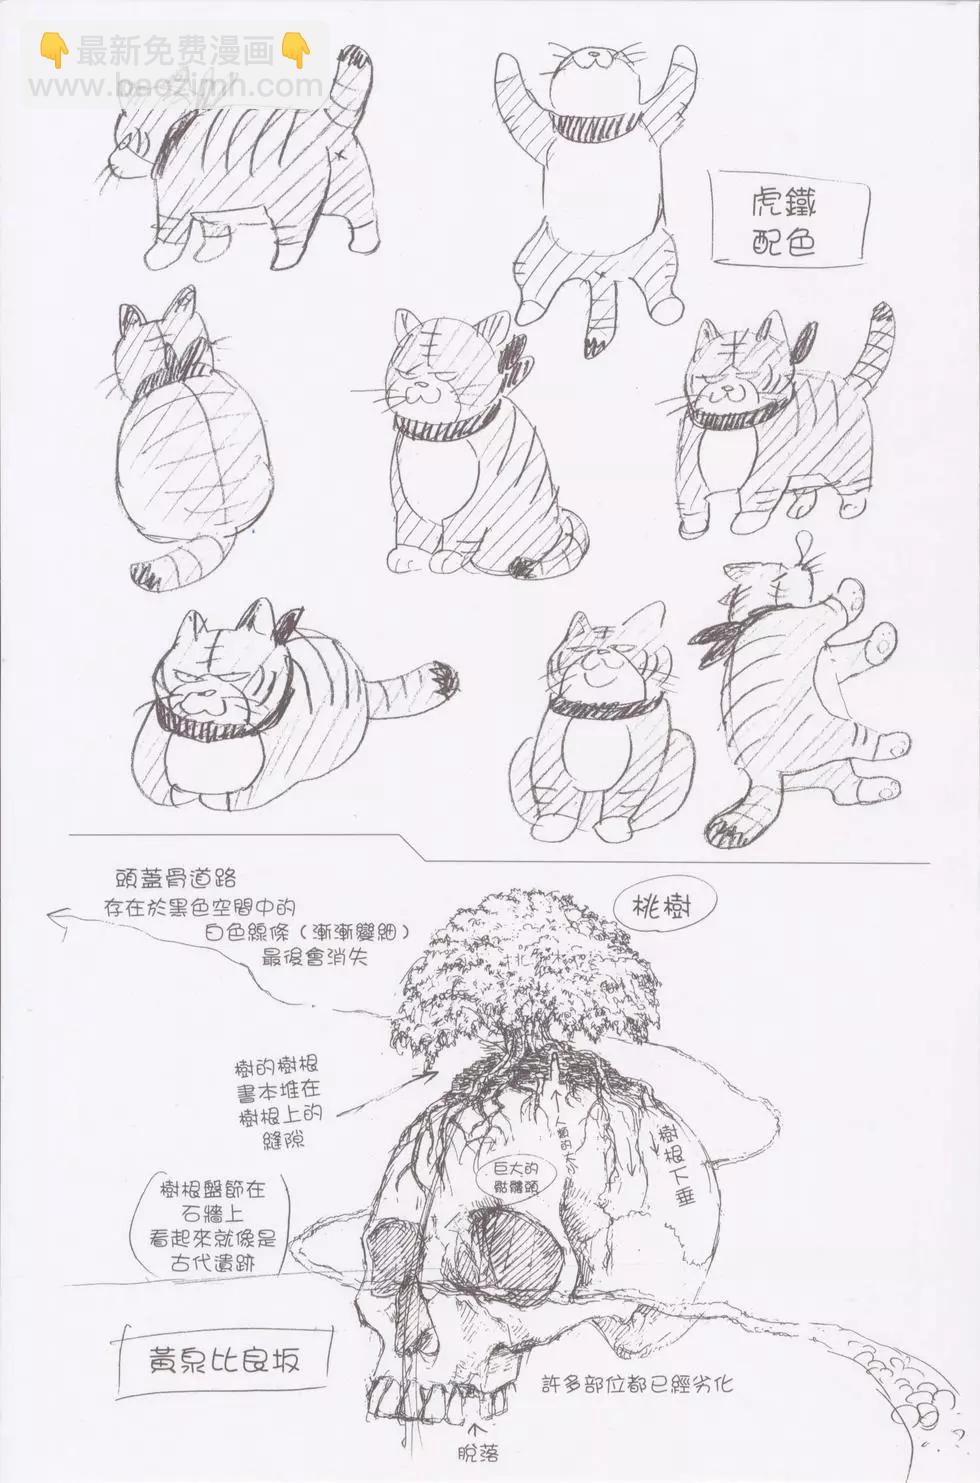 👇最新免费漫画👇
www.baozimh.com
虎鐵
配色
頭蓋骨道路
存在於黑色空間中的
白色線條（漸漸變細）
最後會消失
桃樹
樹的樹根
書本堆在
樹根上的
縫隙
樹根下垂
巨大的
骷髏頭
樹根盤節在
石牆上
看起來就像是
古代遺跡
黃泉比良坂
許多部位都已經劣化
脫落